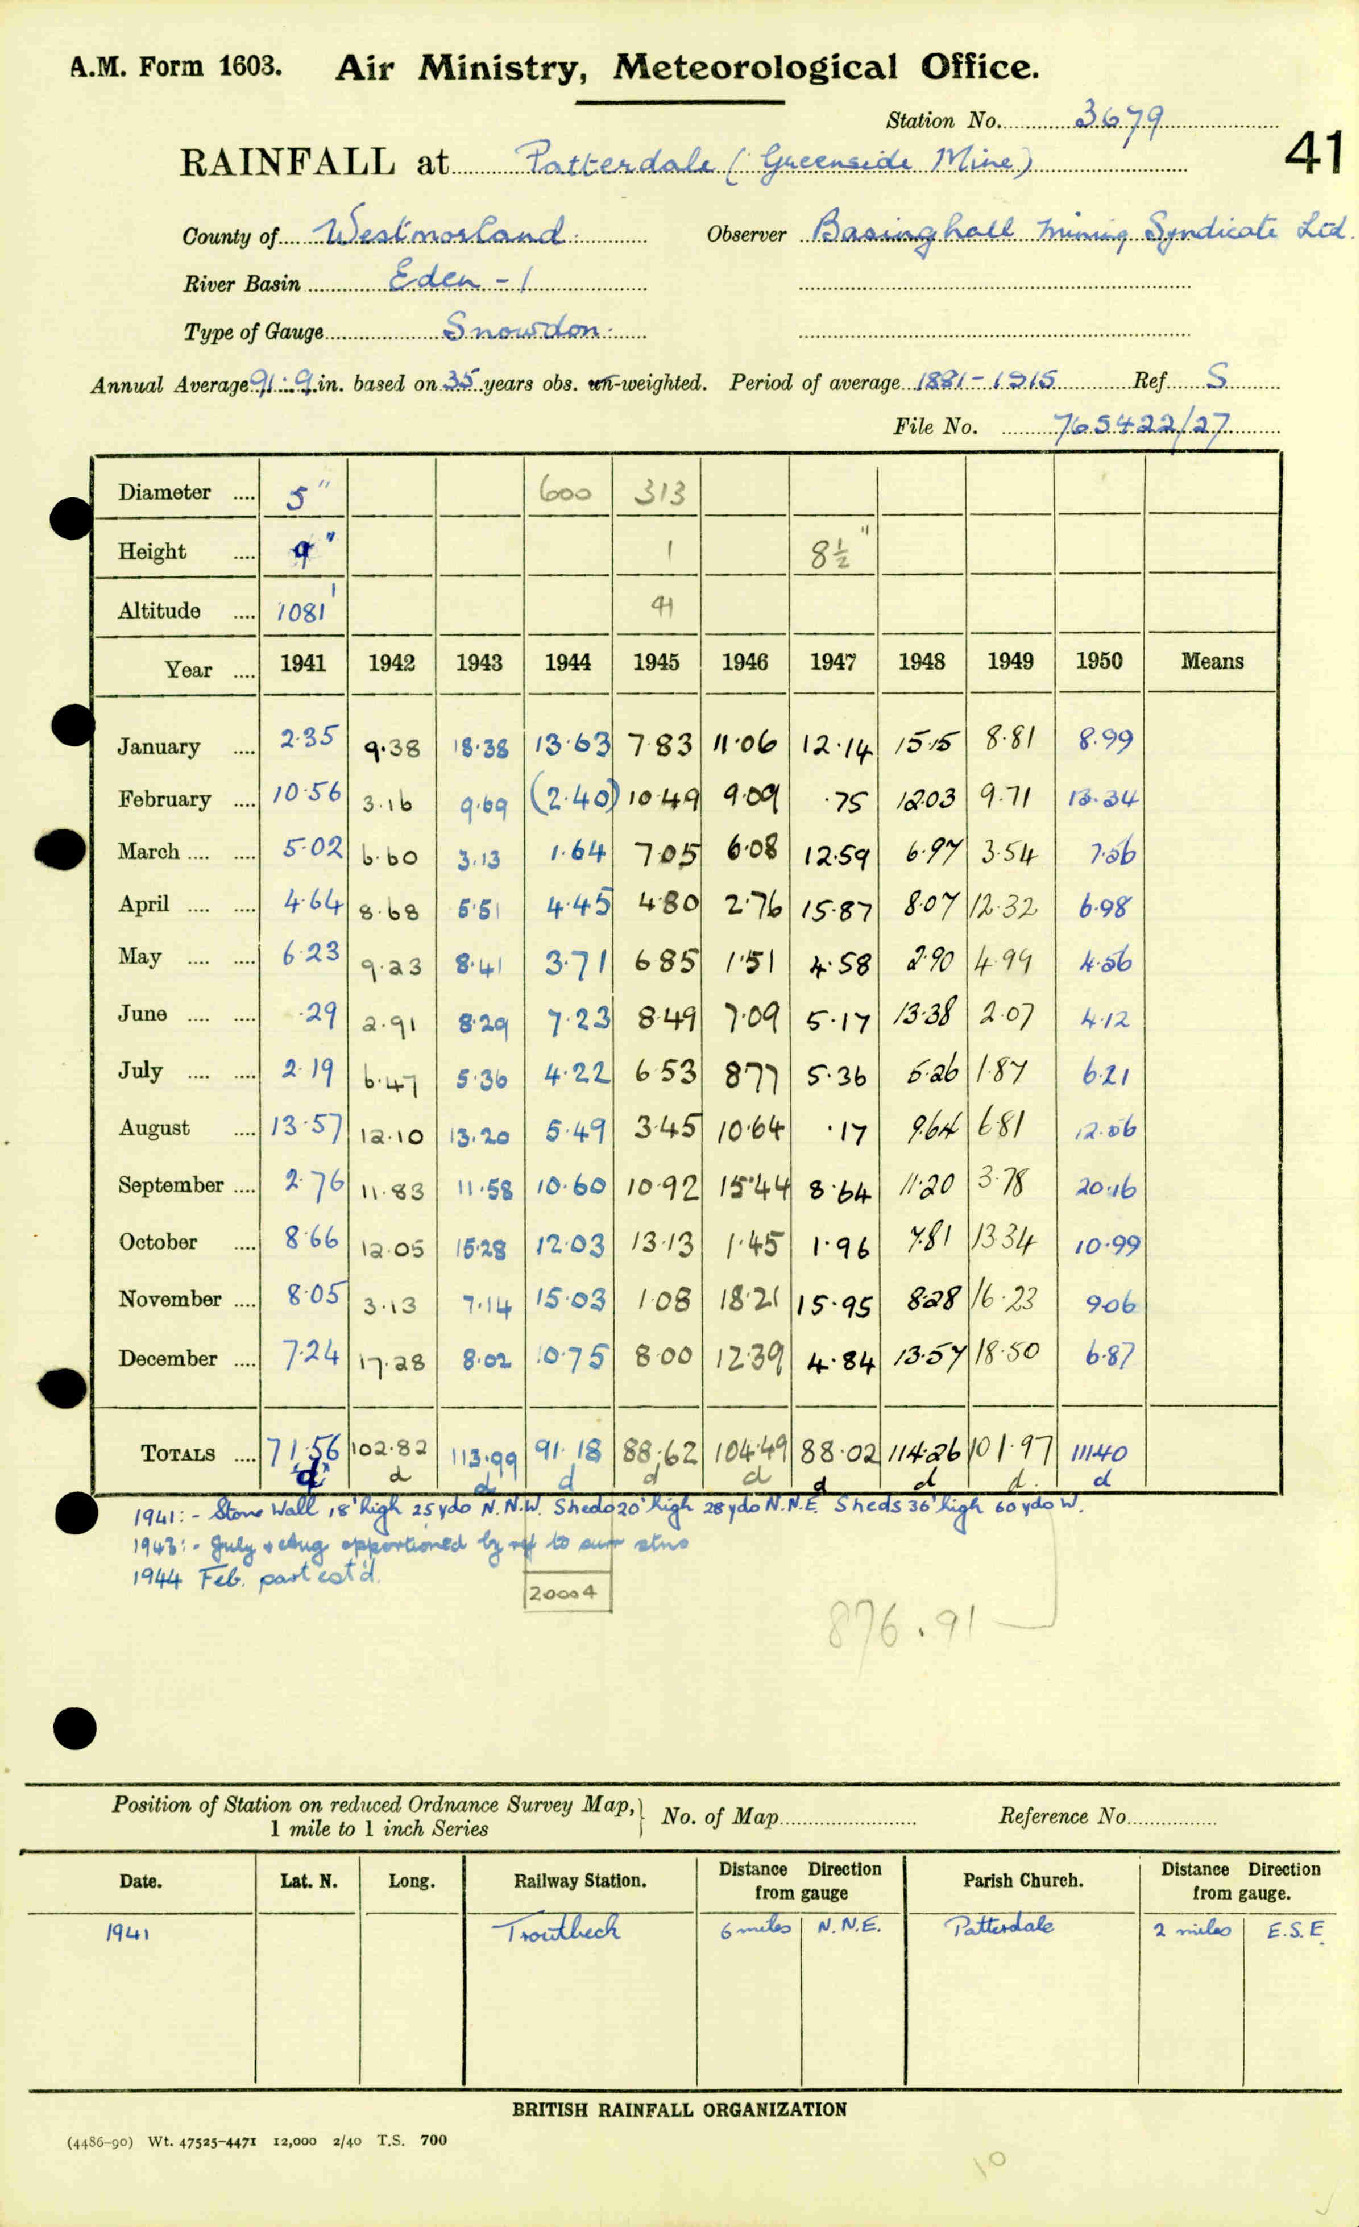 A.M. Form 1603. Air Ministry, Meteorological Office.
Station No. 3679
41
RAINFALL at Patterdale (Greenside Mine)
County of Westmorland. Observer Basinghall Mining Syndicate Ltd.
River Basin Eden - 1
Type of Gauge Snowdon.
Annual Average 91.9 in. based on 35 years obs. un-weighted. Period of average 1881-1915 Ref S
File No. 765422/27
Diameter .... 5" 600 313
Height .... 9" 1 8½"
Altitude .... 1081' 41
Year .... 1941 1942 1943 1944 1945 1946 1947 1948 1949 1950 Means
January .... 2.35 9.38 18.38 13.63 7.83 11.06 12.14 15.15 8.81 8.99
February .... 10.56 3.16 9.69 (2.40) 10.49 9.09 .75 12.03 9.71 13.34
March .... .... 5.02 6.60 3.13 1.64 7.05 6.08 12.59 6.97 3.54 7.56
April .... .... 4.64 8.68 5.51 4.45 4.80 2.76 15.87 8.07 12.32 6.98
May .... .... 6.23 9.23 8.41 3.71 6.85 1.51 4.58 2.90 4.99 4.56
June .... .... .29 2.91 8.29 7.23 8.49 7.09 5.17 13.38 2.07 4.12
July .... .... 2.19 6.47 5.36 4.22 6.53 8.77 5.36 5.26 1.87 6.21
August .... 13.57 12.10 13.20 5.49 3.45 10.64 .17 9.64 6.81 12.56
September .... 2.76 11.83 11.58 10.60 10.92 15.44 8.64 11.20 3.78 20.16
October .... 8.66 12.05 15.28 12.03 13.13 1.45 1.96 7.81 13.34 10.99
November .... 8.05 3.13 7.14 15.03 1.08 18.21 15.95 8.28 16.23 9.06
December .... 7.24 17.28 8.02 10.75 8.00 12.39 4.84 13.57 18.50 6.87
TOTALS .... 71.56 102.82 113.99 91.18 88.62 104.49 88.02 114.26 101.97 111.40
d d d d d d d d d. d
1941:- Stone Wall 18' high 25 yds N.N.W. Sheds 20' high 28 yds N.N.E. Sheds 36' high 60 yds W.
1943:- July & Aug apportioned by ref to surr stns
1944 Feb. part est'd.
20004
876.91
Position of Station on reduced Ordnance Survey Map, 1 mile to 1 inch Series } No. of Map Reference No.
Date. Lat. N. Long. Railway Station. Distance from gauge Direction Parish Church. Distance from gauge. Direction
1941 Troutbeck 6 miles N.N.E. Patterdale 2 miles E.S.E.
BRITISH RAINFALL ORGANIZATION
(4486-90) Wt. 47525-4471 12,000 2/40 T.S. 700
10